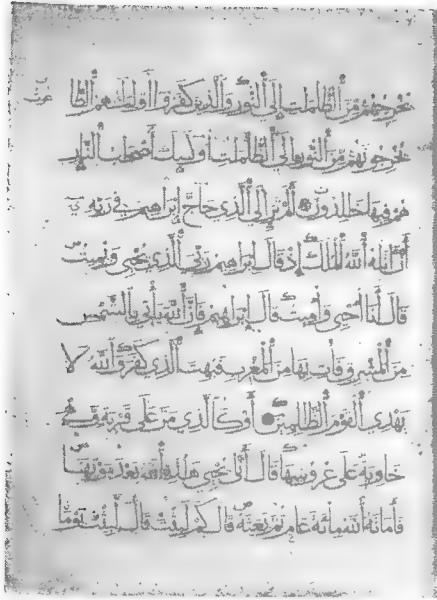 يخرجهم من الظلمات إلى النور والذين كفروا أولياؤهم الطا
غوت
يخرجونهم من النور إلى الظلمات أولئك أصحاب النار
هم فيها خالدون ألم تر إلى الذي حاج إبراهيم في ربه
أن آتاه الله الملك إذ قال إبراهيم ربي الذي يحيي ويميت
قال أنا أحيي وأميت قال إبراهيم فإن الله يأتي بالشمس
من المشرق فأت بها من المغرب فبهت الذي كفر والله لا
يهدي القوم الظالمين أو كالذي مر على قرية وهي
خاوية على عروشها قال أنى يحيي هذه الله بعد موتها
فأماته الله مائة عام ثم بعثه قال كم لبثت قال لبثت يوما